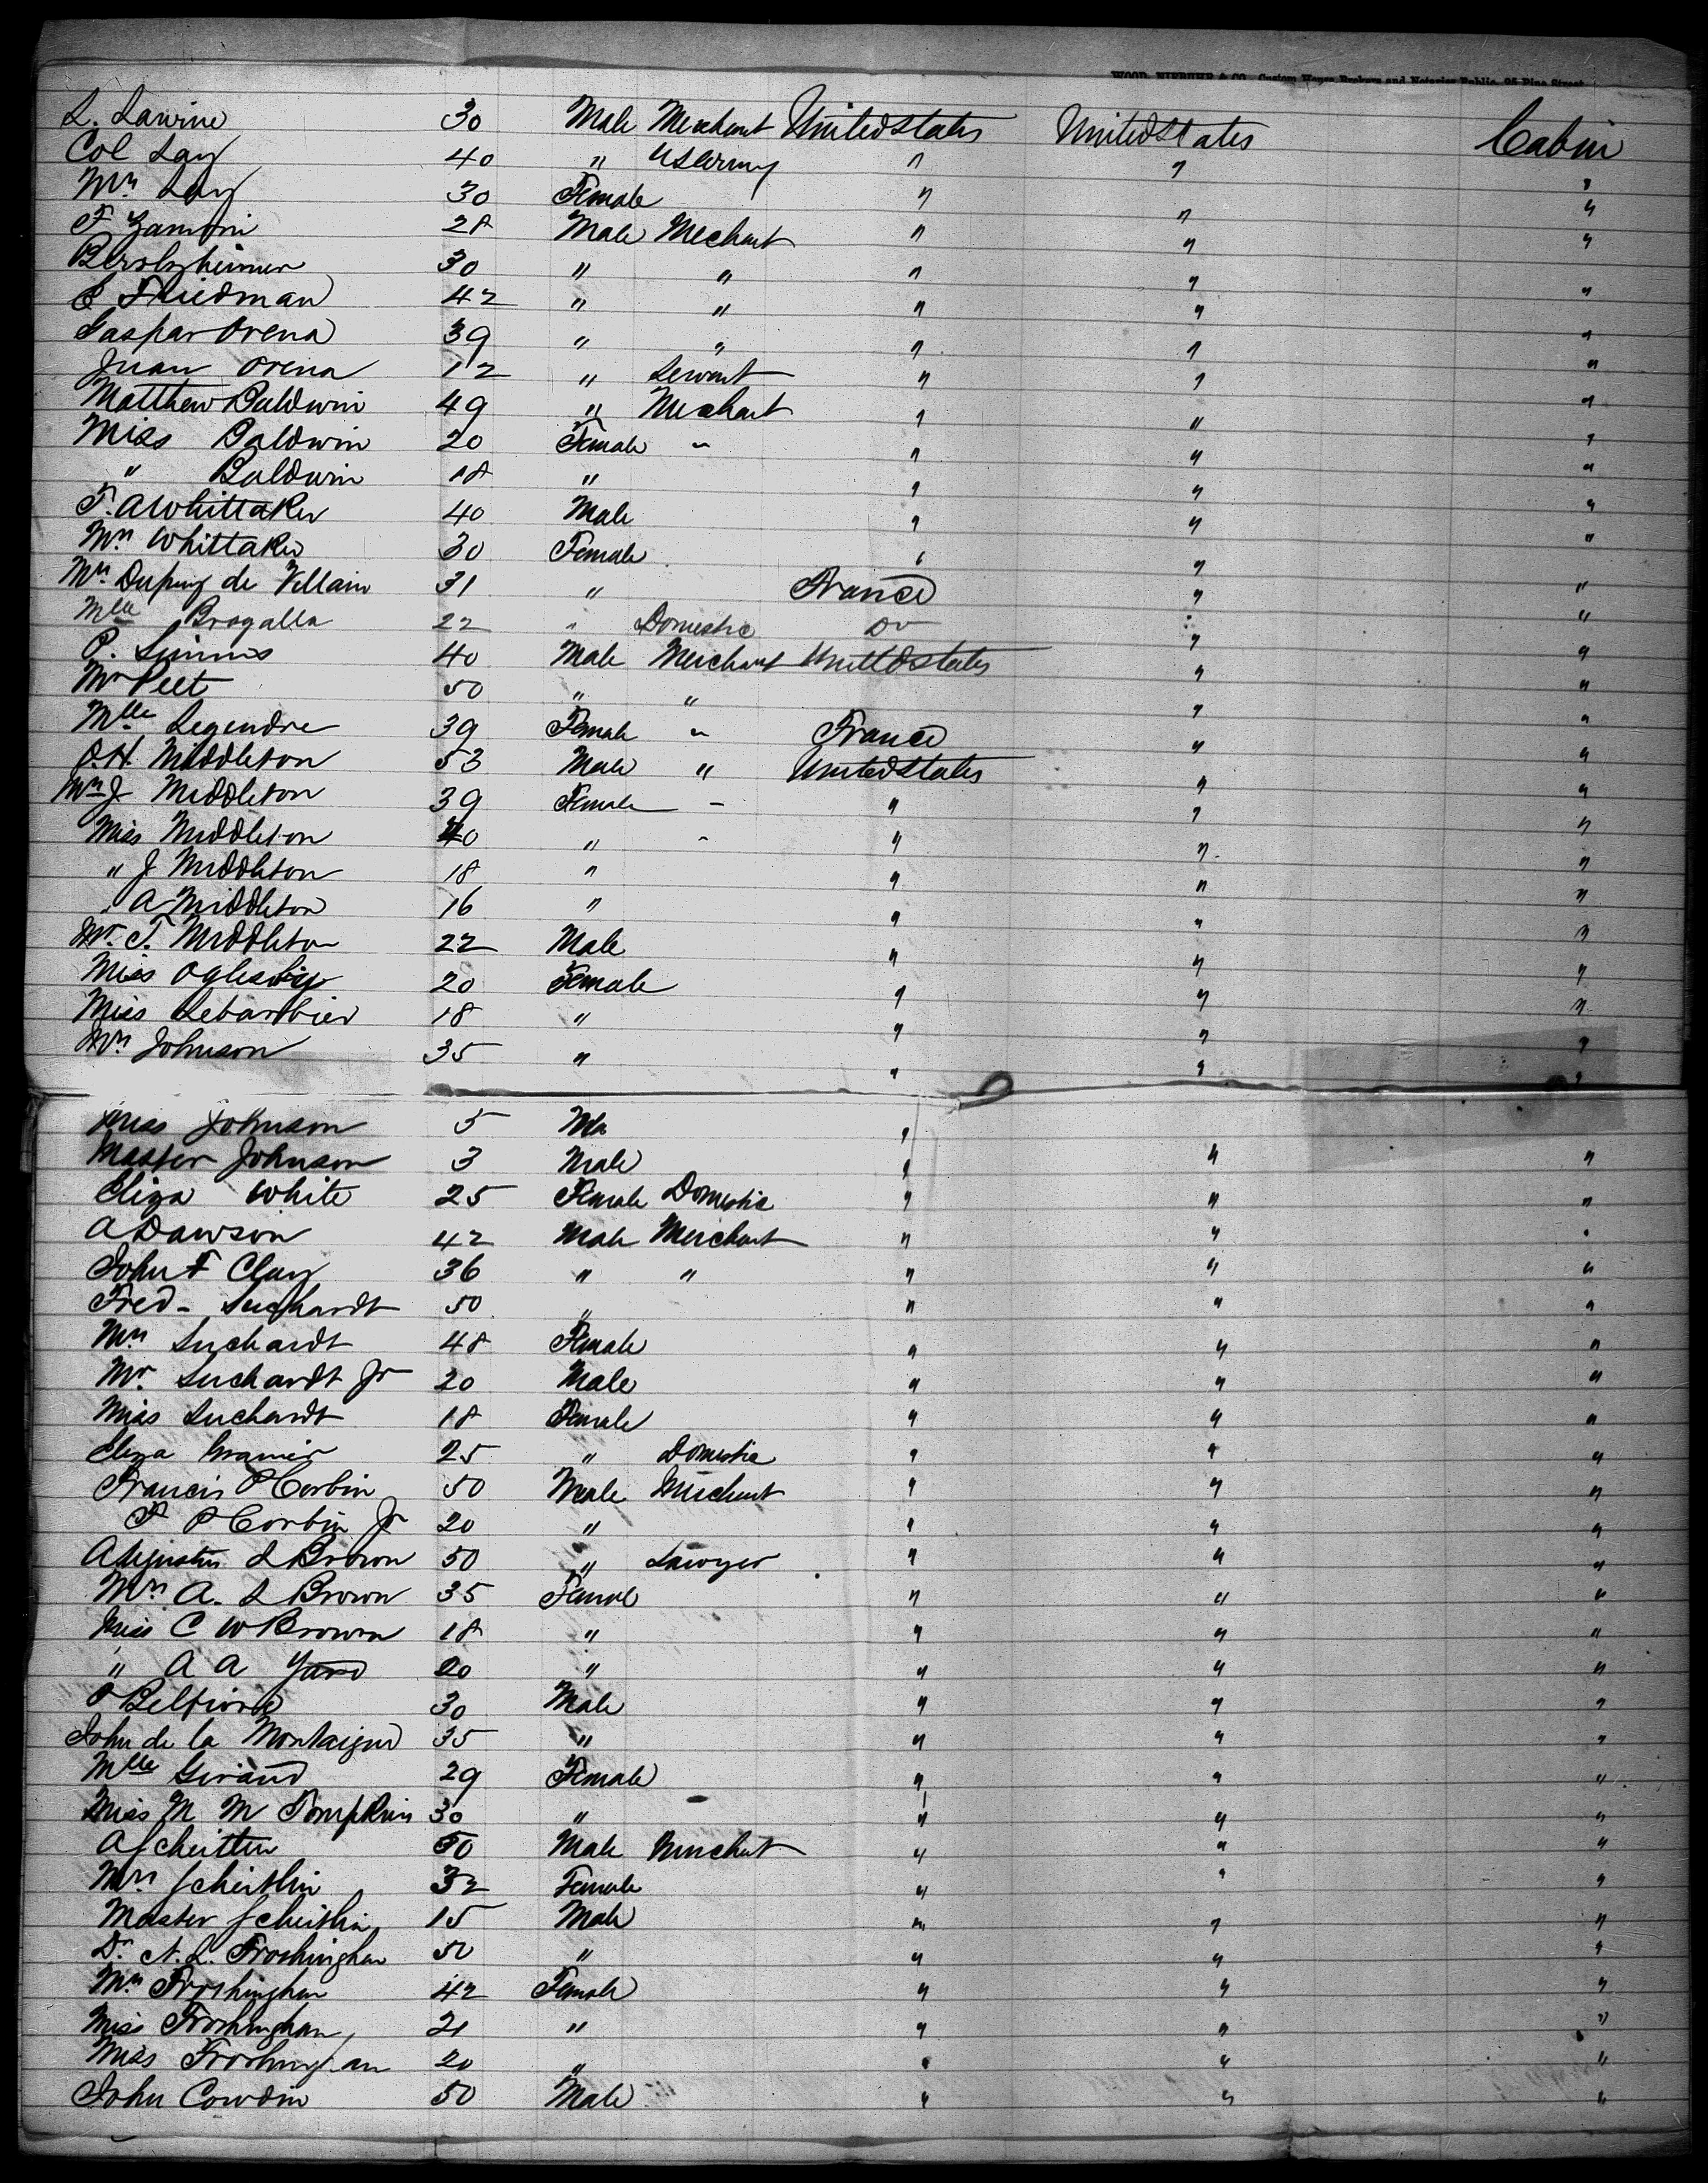 WOOD, NIEBUHR & CO., Custom House Brokers and Notaries Public, 25 Pine Street
L. Lawine 30 Male Merchant United States United States Cabin
Col Lay 40 " US Army " " "
Mrs Lay 30 Female " " "
F Zamoni 28 Male Mechant " " "
Bersholzheimer 30 " " " " "
E Friedman 42 " " " " "
Gaspar Orena 39 " " " " "
Juan Orena 12 " Servant " " "
Matthew Baldwin 49 " Mechant " " "
Miss Baldwin 20 Female " " " "
" Baldwin 18 " " " "
T. A Whittaker 40 Male " " "
Mrs Whittaker 30 Female " " "
Mrs Dupuy de Villain 31 " France " "
Mlle Brogalla 22 " Domestic Do " "
P. Simms 40 Male Merchant United States " "
Mr Peet 50 " " " "
Mlle Legendre 39 Female " France " "
J. H. Middleton 53 Male " United States " "
Mrs J Middleton 39 Female - " " "
Miss Middleton 20 " - " " "
" J Middleton 18 " " " "
" A Middleton 16 " " " "
Mr. T. Middleton 22 Male " " "
Miss Oglesby 20 Female " " "
Miss Lebarbier 18 " " " "
Mrs Johnson 35 " " " "
Miss Johnson 5 Ma "
Master Johnson 3 Male " " "
Eliza White 25 Female Domestic " " "
A Dawson 42 Male Merchant " " "
John F Clay 36 " " " " "
Fred- Suchardt 50 " " " "
Mrs Suchardt 48 Female " " "
Mr. Suchardt Jr 20 Male " " "
Miss Suchardt 18 Female " " "
Eliza 25 " Domestic " " "
Francis P Corbin 50 Male Merchant " " "
F P Corbin Jr 20 " " " "
Augustus L Brown 50 " Lawyer " " "
Mrs A. L Brown 35 Female " " "
Miss C W Brown 18 " " " "
" A A Yard 20 " " " "
30 Male " " "
John de la Montaigne 35 " " " "
Mlle Giraud 29 Female " " "
Miss M M Tompkins 30 " " " "
A Scheitlin 50 Male Merchant " " "
Mrs Scheitlin 32 Female " " "
Master Scheitlin 15 Male " " "
Dr. N. L. Frothingham 50 " " " "
Mrs Frothingham 42 Female " " "
Miss Frothingham 21 " " " "
Miss Frothingham 20 " " " "
John Cowdin 50 Male " " "